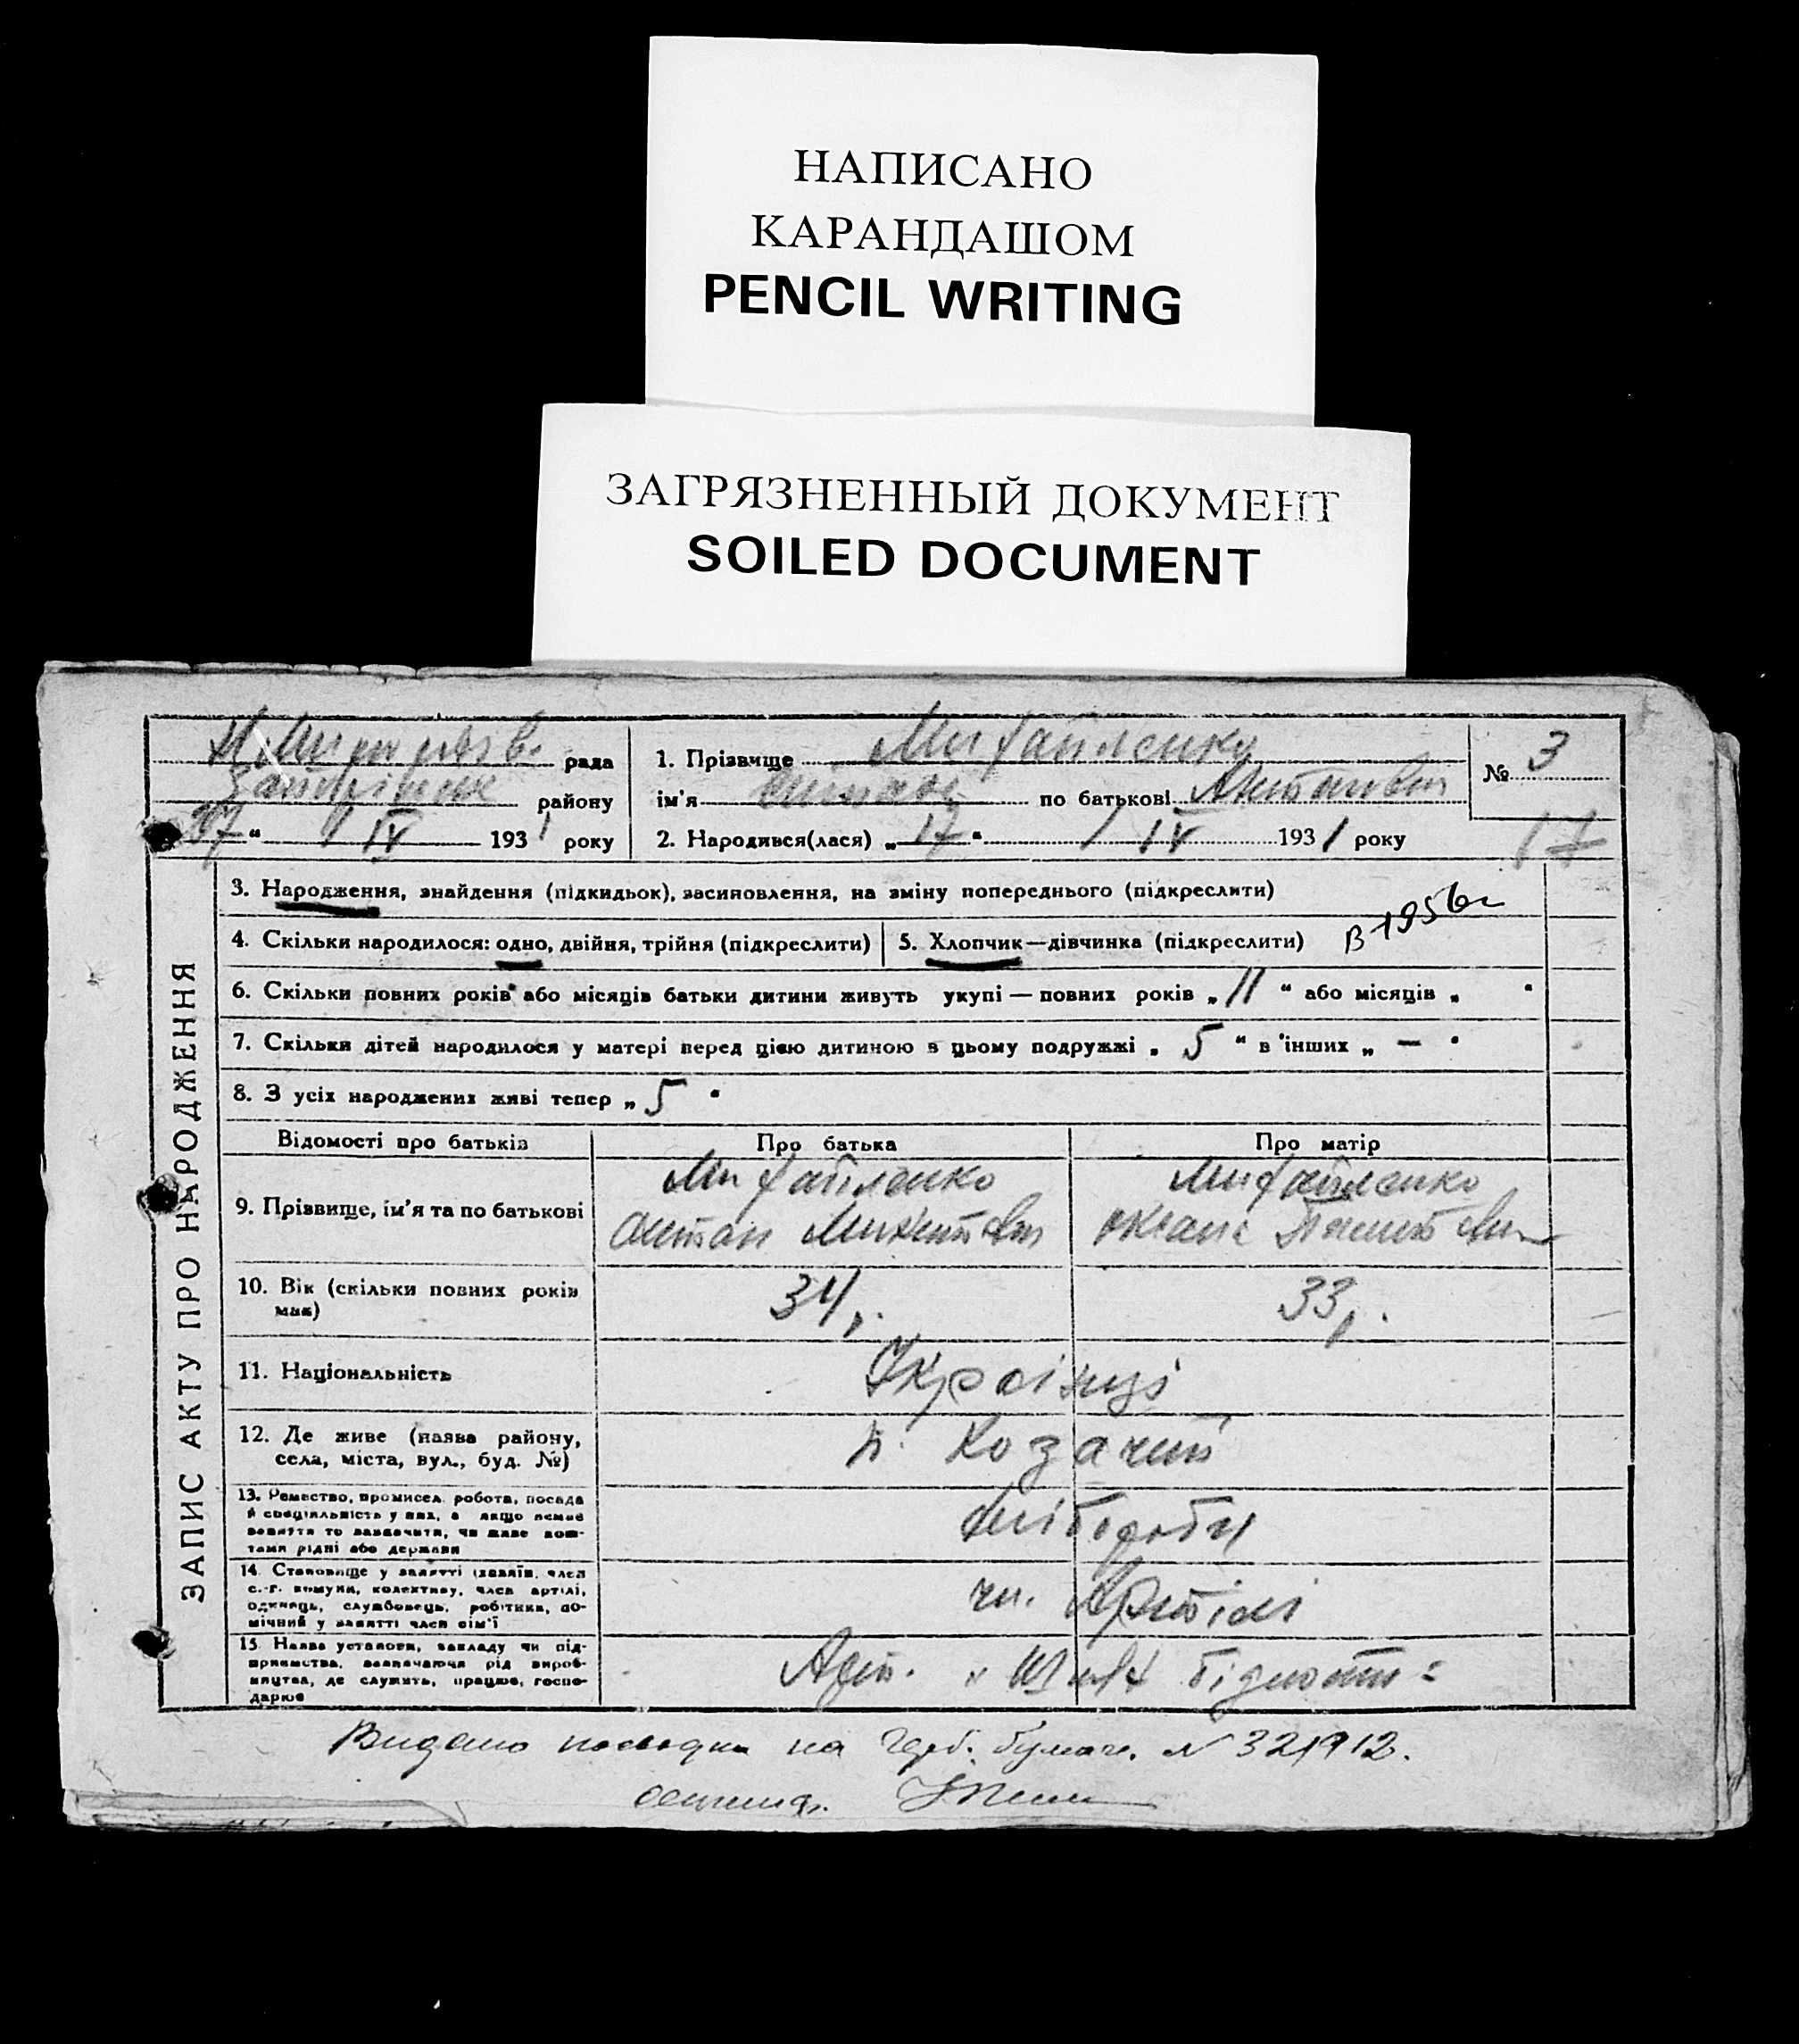 НАПИСАНО
КАРАНДАШОМ
PENCIL WRITING
ЗАГРЯЗНЕННЫЙ ДОКУМЕНТ
SOILED DOCUMENT
рада
району
27 " / IV 1931 року
1. Прізвище Михайленко
ім'я по батькові Антанович
2. Народився(лася) „ 17 " / IV 1931 року
№ 3
17
ЗАПИС АКТУ ПРО НАРОДЖЕННЯ
3. Народження, знайдення (підкидьок), засиновлення, на зміну попереднього (підкреслити)
4. Скільки народилося: одно, двійня, трійня (підкреслити)
5. Хлопчик—дівчинка (підкреслити)
в 1956г
6. Скільки повних років або місяців батьки дитини живуть укупі — повних років „ 11 " або місяців „ "
7. Скільки дітей народилося у матері перед цією дитиною в цьому подружжі „ 5 " в інших „ — "
8. З усіх народжених живі тепер „ 5 "
Відомості про батьків
Про батька
Про матір
9. Прізвище, ім'я та по батькові
Михайленко
Антан Микитович
Михайленко
Оксана
10. Вік (скільки повних років
має)
34 р.
33 р.
11. Національність
Українці
12. Де живе (назва району,
села, міста, вул., буд. №)
х. Козачий
13. Ремество, промисел, робота, посада
й спеціяльність у них, а якщо немає
заняття то зазначити, чи живе кош-
тами рідні або держави
хлібороби
14. Становище у занятті (хазяїн, член
с.-г. комуни, колективу, член артілі,
одинець, службовець, робітник, по-
мічний у занятті член сім'ї
чл. Артілі
15. Назва установи, закладу чи під-
приємства, зазначаючи рід вироб-
ництва, де служить, працює, госпо-
дарює
Арт. Шлях бідноти
Видано на герб. бумаге. N 321912.